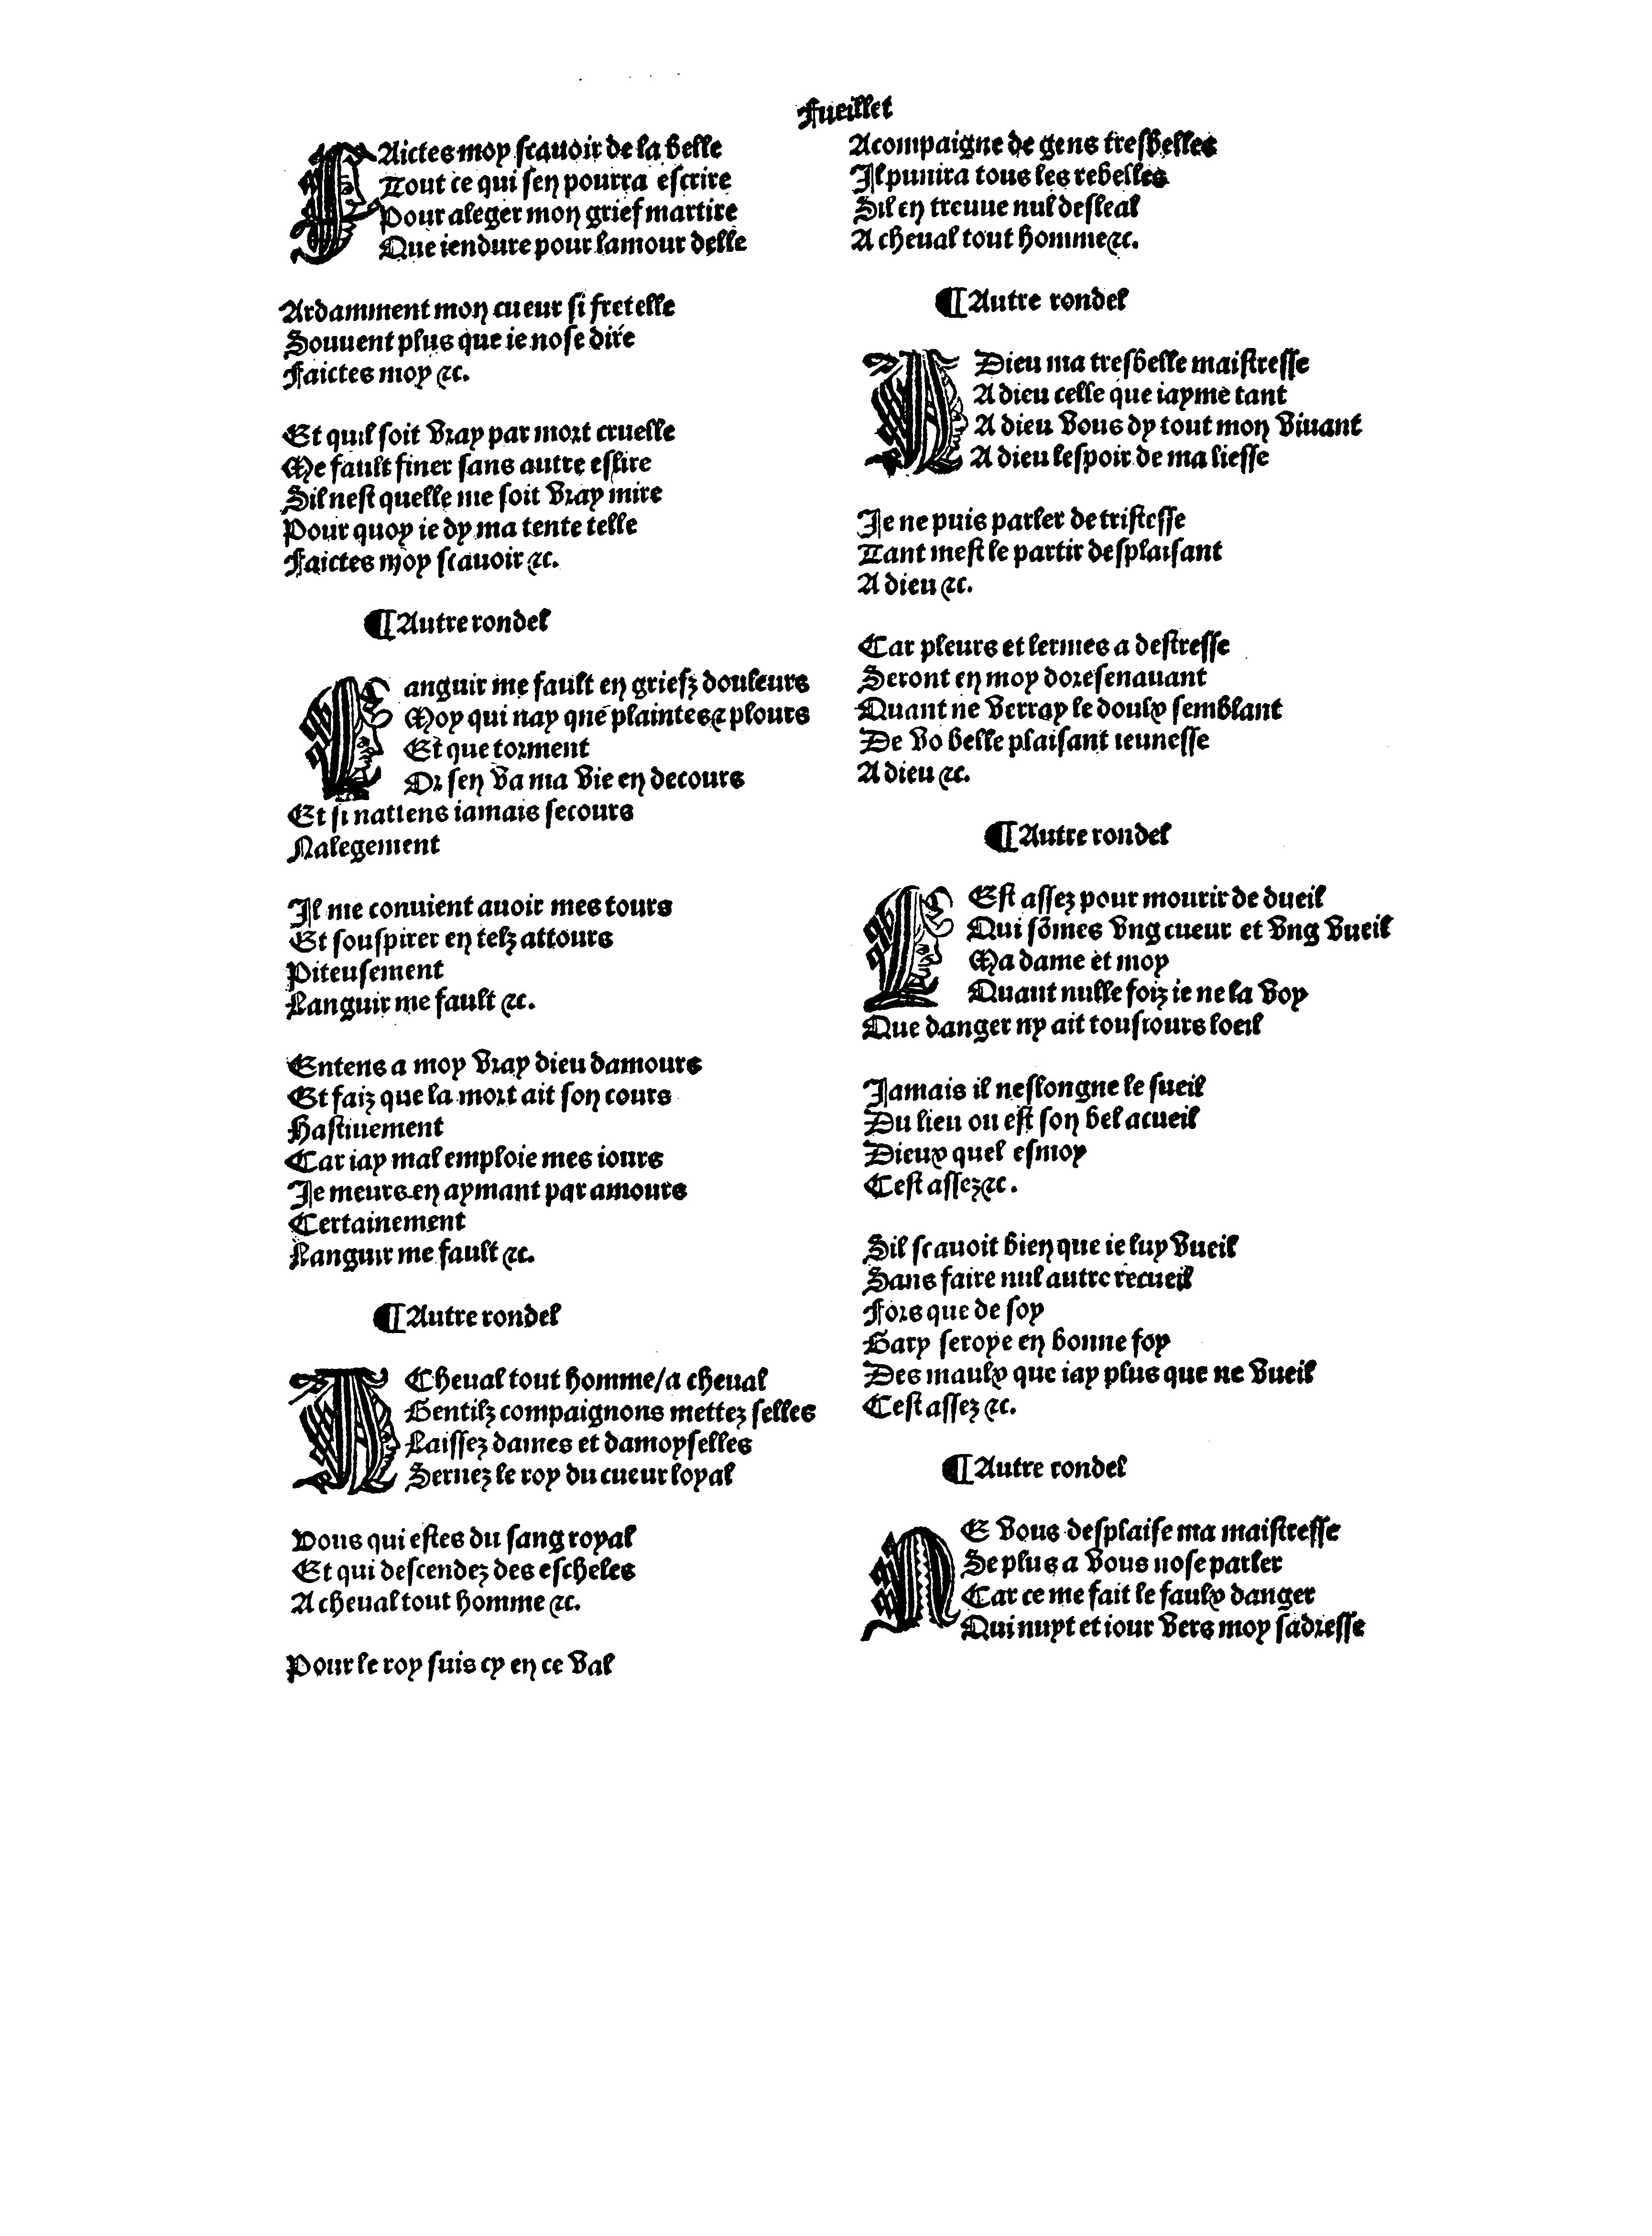 Fueillet
FAictes moy scauoir de la belle
Tout ce qui sen pourra escrire
Pour aleger mon grief martire
Que iendure pour lamour delle
Ardamment mon cueur si fretelle
Souuent plus que ie nose dire
Faictes moy &c.
Et quil soit vray par mort cruelle
Me fault finer sans autre eslire
Sil nest quelle me soit vray mire
Pour quoy ie dy ma tente telle
Faictes moy scauoir &c.
¶Autre rondel
Languir me fault en griefz douleurs
Moy qui nay que plaintes & plours
Et que torment
Or sen va ma vie en decours
Et si nattens iamais secours
Nalegement
Il me conuient auoir mes tours
Et souspirer en telz attours
Piteusement
Languir me fault &c.
Entens a moy vray dieu damours
Et faiz que la mort ait son cours
Hastiuement
Car iay mal emploie mes iours
Je meurs en aymant par amours
Certainement
Languir me fault &c.
¶Autre rondel
A Cheual tout homme/a cheual
Gentilz compaignons mettez selles
Laissez dames et damoyselles
Seruez le roy du cueur loyal
Vous qui estes du sang royal
Et qui descendez des escheles
A cheual tout homme &c.
Pour le roy suis cy en ce val
Acompaigne de gens tresbelles
Il punira tous les rebelles
Sil en treuue nul desleal
A cheual tout homme &c.
¶Autre rondel
A Dieu ma tresbelle maistresse
A dieu celle que iayme tant
A dieu vous dy tout mon viuant
A dieu lespoir de ma liesse
Je ne puis parler de tristesse
Tant mest le partir desplaisant
A dieu &c.
Car pleurs et lermes a destresse
Seront en moy doresenauant
Quant ne verray le doulx semblant
De vo belle plaisant ieunesse
A dieu &c.
¶Autre rondel
CEst assez pour mourir de dueil
Qui sõmes vng cueur et vng vueil
Ma dame et moy
Quant nulle foiz ie ne la voy
Que danger ny ait tousiours loeil
Jamais il neslongne le sueil
Du lieu ou est son bel acueil
Dieux quel esmoy
Cest assez &c.
Sil scauoit bien que ie luy vueil
Sans faire nul autre recueil
Fors que de soy
Gary seroye en bonne foy
Des maulx que iay plus que ne vueil
Cest assez &c.
¶Autre rondel
NE vous desplaise ma maistresse
Se plus a vous nose parler
Car ce me fait le faulx danger
Qui nuyt et iour vers moy sadresse